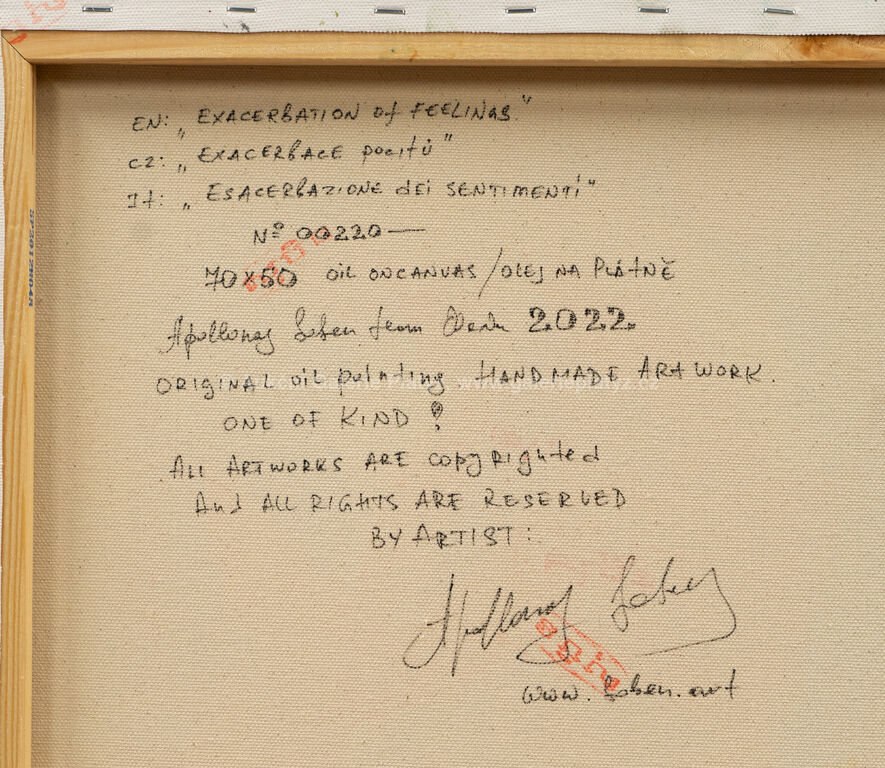 EN: „EXACERBATION of FEELINGS"
CZ: „EXACERBACE pocitů"
It: „ESACERBAZIONE dei SENTIMENTI"
Nº 00220—
70x50 OIL ONCANVAS/OLEJ NA PLÁTNĚ
Apollonas Soben 2022
ORIGINAL oil painting. HANDMADE ARTWORK.
ONE OF KIND!
All ARTWORKS ARE copyRighted
And ALL RIGHTS ARE RESERVED
BY ARTIST:
Apollonas Soben
www.Soben.art